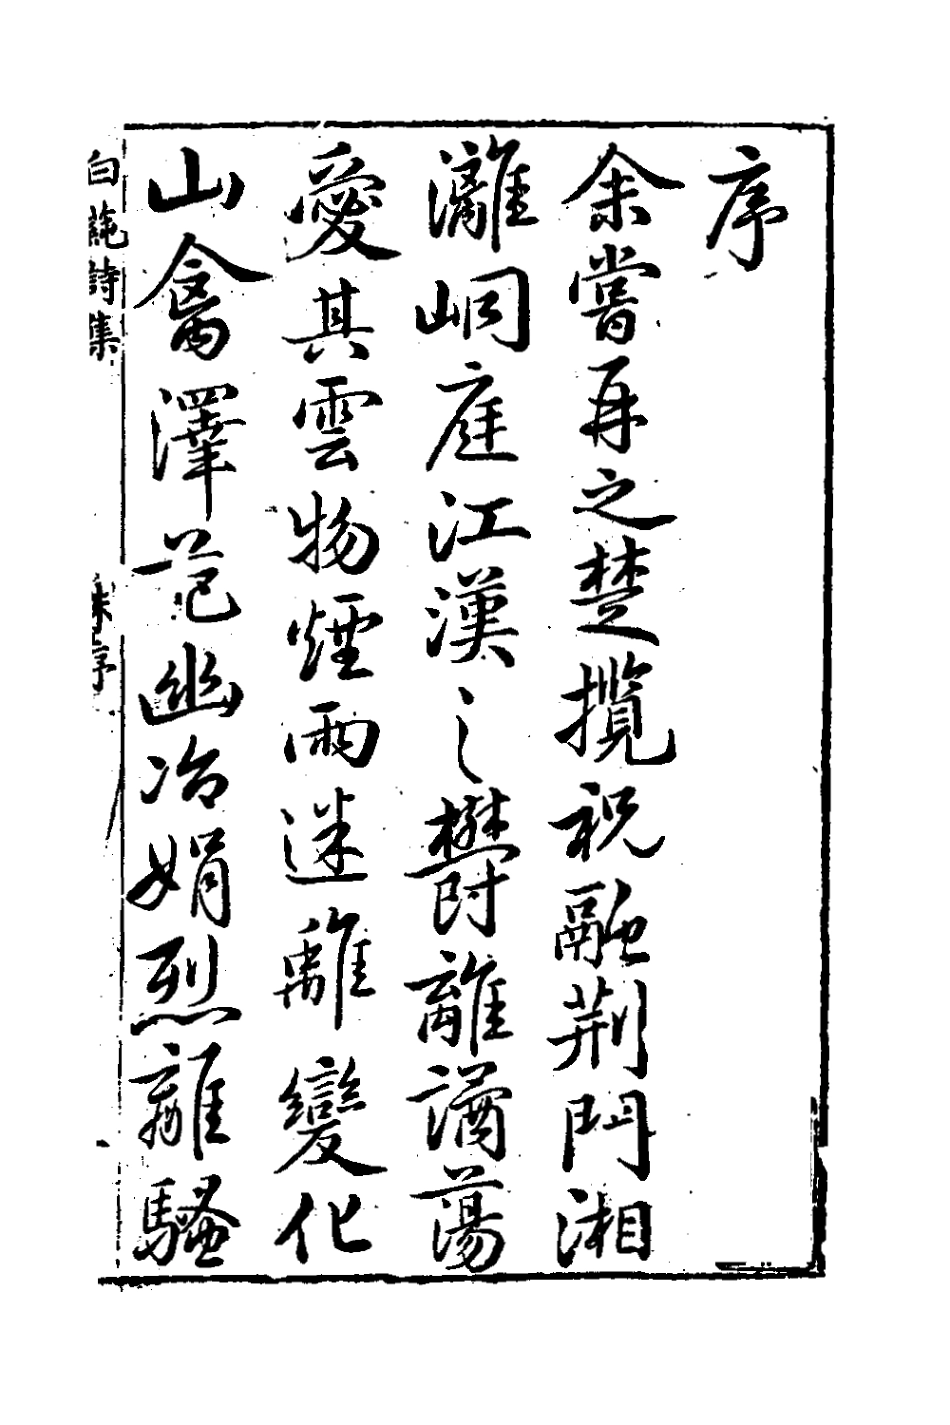 序
余嘗再之楚攬祝融荆門湘
灕峒庭江漢之欝離譎蕩
愛其雲物煙雨迷離變化
山禽澤芭幽冷娟烈離騷
白蒓詩集
朱序